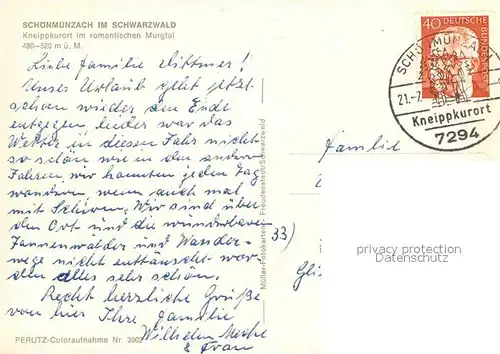 SCHÖNMÜNZACH IM SCHWARZWALD
Kneippkurort im romantischen Murgtal
480–520 m ü. M.
Liebe Familie
Unser Urlaub geht jetzt
schon wieder dem Ende
entgegen, leider war das
Wetter in diesem Jahr nicht
so schön wie in den andern
Jahren, wir konnten jeden Tag
wandern wenn auch mal
mit Schirm. Wir sind über
den Ort und die wunderbaren
Tannenwälder und Wander-
wege nicht enttäuscht
alles sehr schön.
Recht herzliche Grüße
von hier Ihre Familie
Wilhelm
& Frau
PERUTZ-Coloraufnahme Nr. 3902
Müller-Fotokarten, Freudenstadt/Schwarzwald
40 DEUTSCHE BUNDESPOST
SCHÖNMÜNZA
21.-7.
Kneippkurort
7294
Familie
33)
privacy protection
Datenschutz